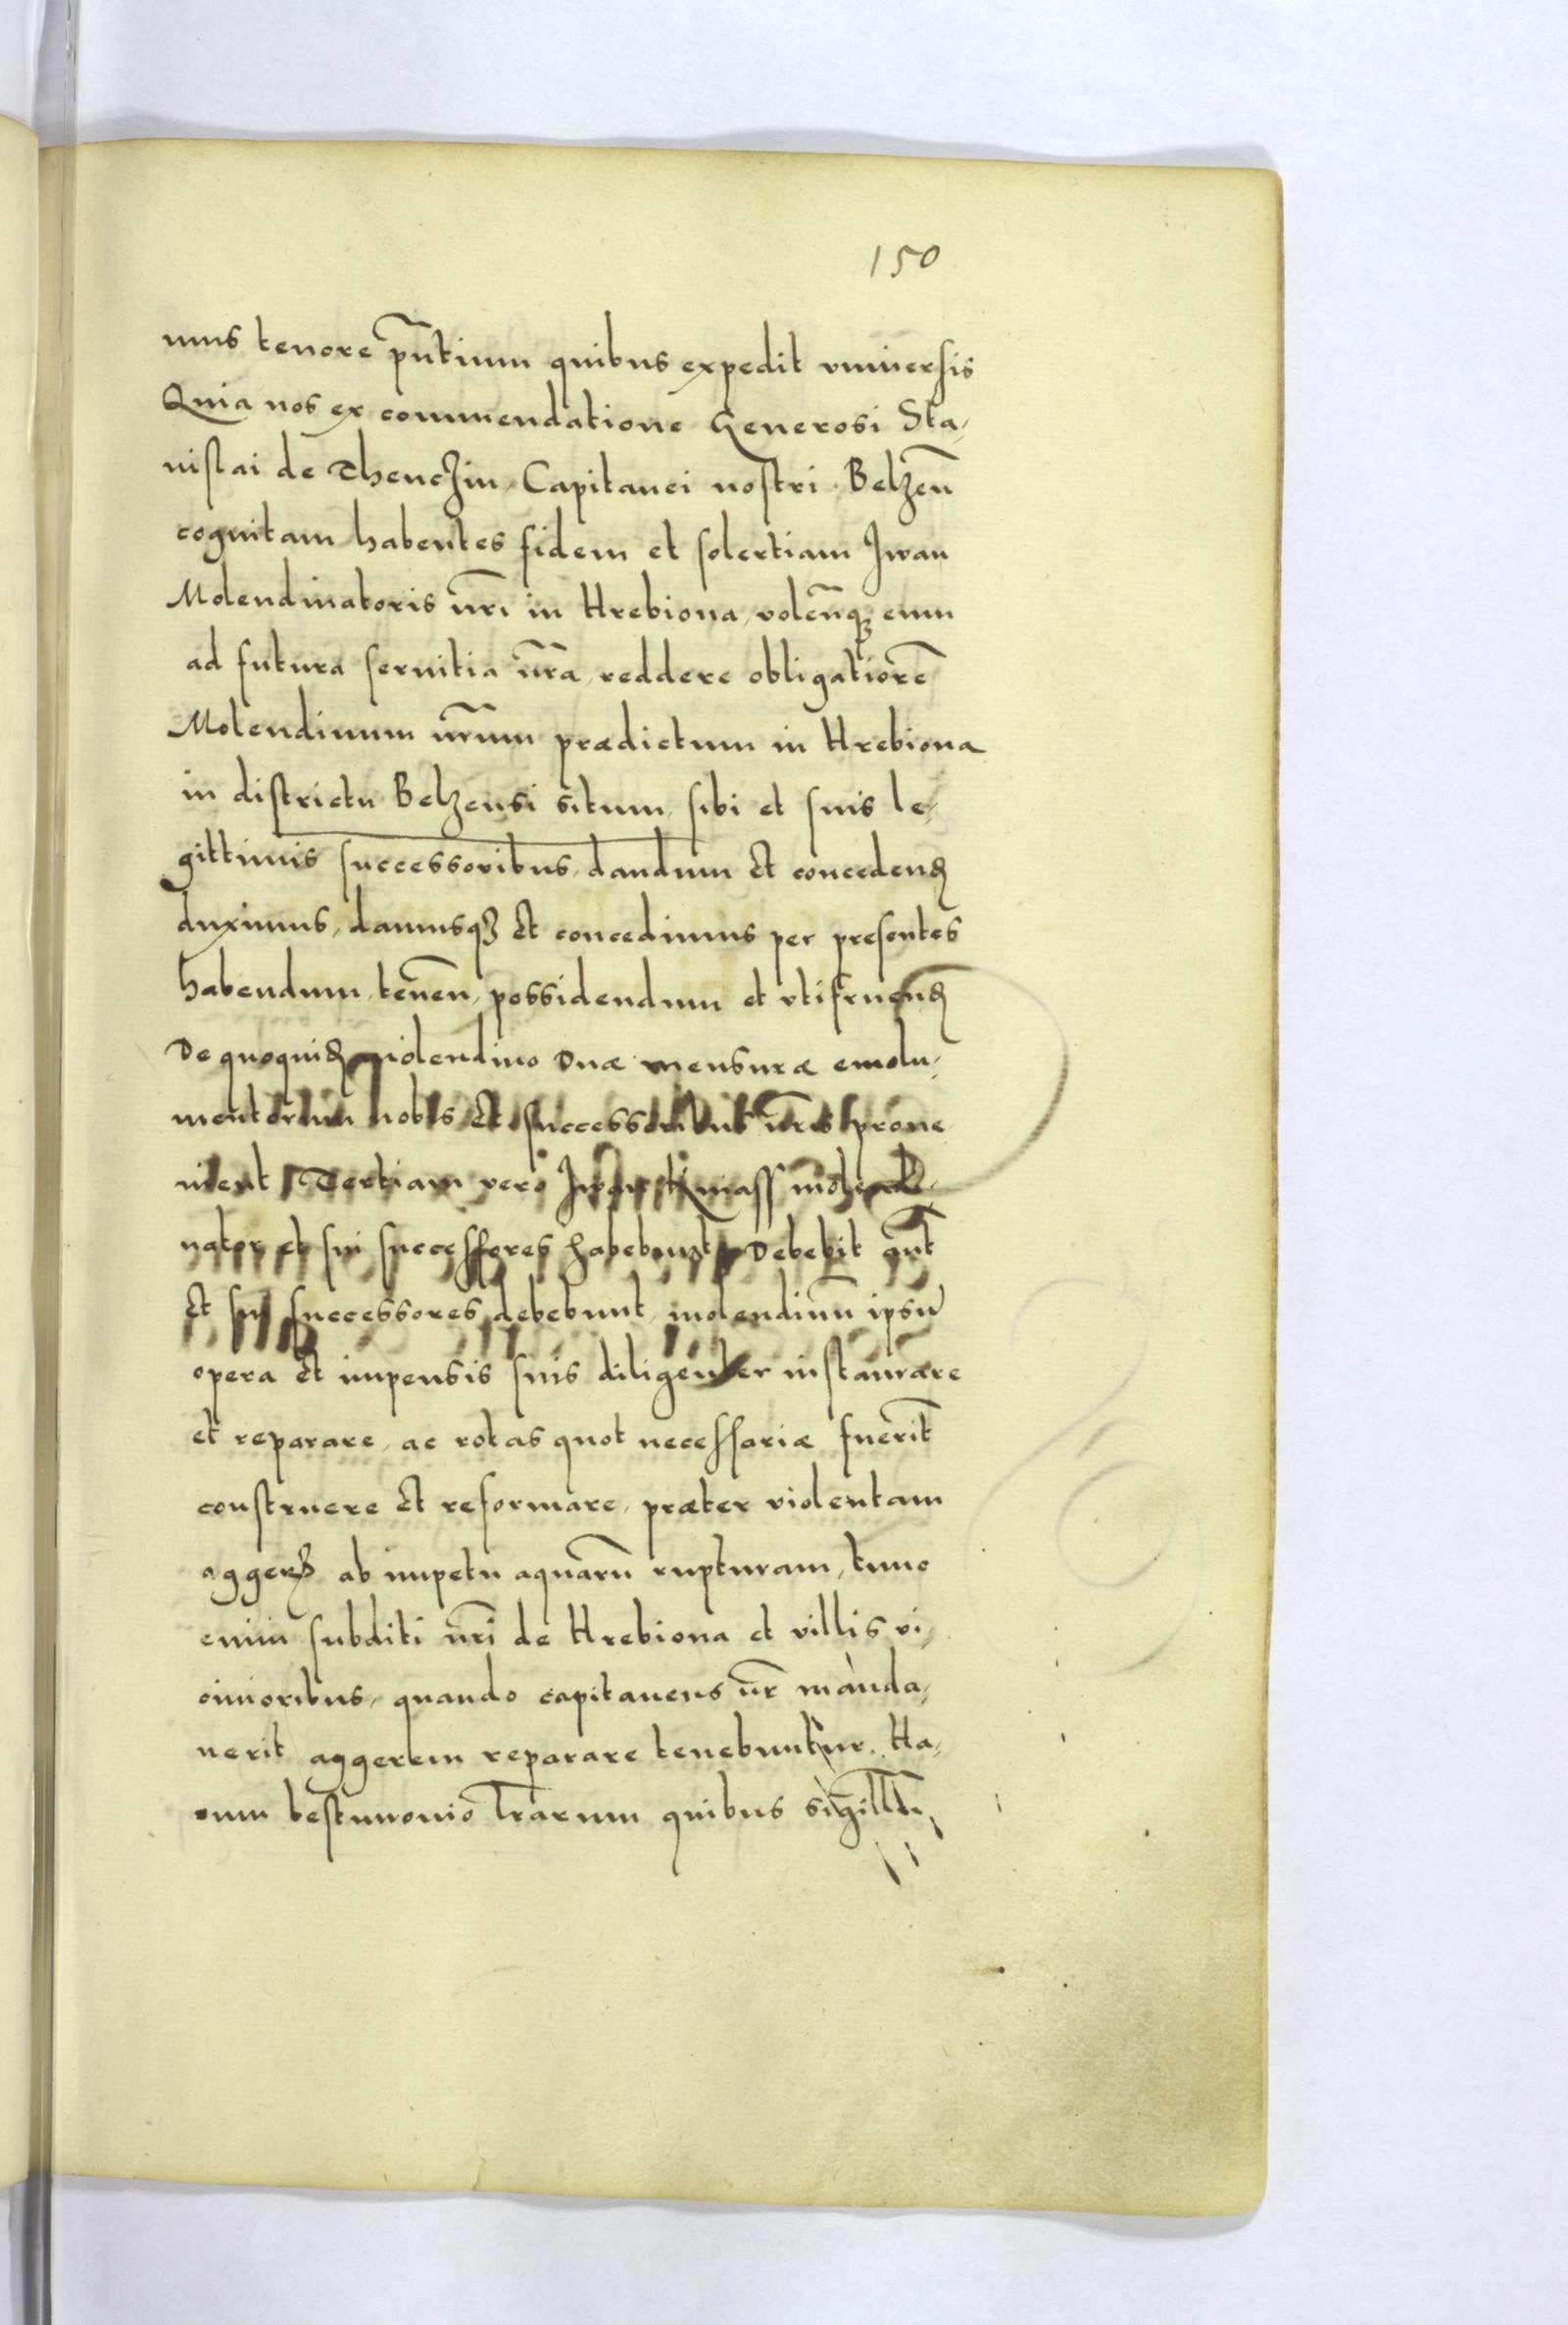 150
mus tenore pn̄tium quibus expedit vniuersis
Quia nos ex commendatione Generosi Sta,
nislai de ThencZin, Capitanei nostri Belzen̄
cognitam habentes fidem et solertiam Iwan
Molendinatoris nr̄i in Hrebiona, volen̄qꝫ eum
ad futura seruitia nr̄a, reddere obligatiorē
Molendinum nr̄um prædictum in Hrebiona
in districtu Belzensi situm, sibi et suis le,
gittimis successoribus, dandum et concedenꝸ
duximus, damusqꝫ et concedimus per presentes
habendum, tenen̄, possidendum et vtifruenꝸ
De quoquiꝸ molendino Duæ mensuræ emolu,
mentorum nobis et successoribus nr̄is proue
nient Tertiam vero Iwan Kmass molendi,
nator et sui successores habebunt Debebit
et sui successores debebunt, molendinū ipsū
opera et impensis suis diligenter instaurare
et reparare, ac rotas quot necessariæ fuerīt
construere et reformare, præter violentam
aggerꝭ ab impetu aquarū rupturam, tunc
enim subditi nr̄i de Hrebiona et villis vi,
cinioribus, quando capitaneus nr̄ manda,
uerit aggerem reparare tenebuntur. Ha,
rum testimonio lr̄arum quibus